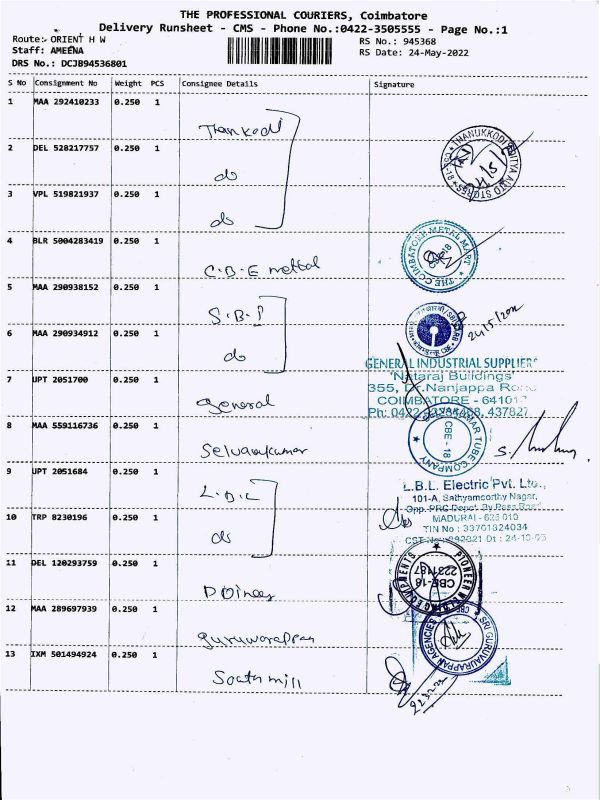 THE PROFESSIONAL COURIERS, Coimbatore
Delivery Runsheet - CMS - Phone No.:0422-3505555 - Page No.:1
Route:- ORIENT H W
RS No.: 945368
Staff: AMEENA
RS Date: 24-May-2022
DRS No.: DCJB94536801
S No Consignment No Weight PCS Consignee Details Signature
1 MAA 292410233 0.250 1
Thankodi
THANUKKODI AUTO STORES
2 DEL 528217757 0.250 1
do
24/5/22
3 VPL 519821937 0.250 1
do
4 BLR 5004283419 0.250 1
C.B.E mettal
THE COIMBATORE METAL MART
5 MAA 290938152 0.250 1
S.B.I
24/5/202
6 MAA 290934912 0.250 1
do
GENERAL INDUSTRIAL SUPPLIERS
'Nataraj Buildings'
7 UPT 2051700 0.250 1
355, Dr.Nanjappa Road
general
COIMBATORE - 64101
Ph: 0422 437827
8 MAA 559116736 0.250 1
Selvaakumar
TUBE COMPANY
CBE - 18
9 UPT 2051684 0.250 1
L.B.L
L.B.L. Electric Pvt. Ltd.,
101-A, Sathyamoorthy Nagar,
Opp. PRC Depot, By Pass Road
10 TRP 8230196 0.250 1
do
MADURAI - 625 010
TIN No : 33701824034
Dt : 24-10-
11 DEL 120293759 0.250 1
PIONEER WELDING EQUIPMENTS
CBE-18
2231187
12 MAA 289697939 0.250 1
guruvarappan
SRI GURUVAURAPPAN AGENCIES
CBE
13 IXM 501494924 0.250 1
South mill